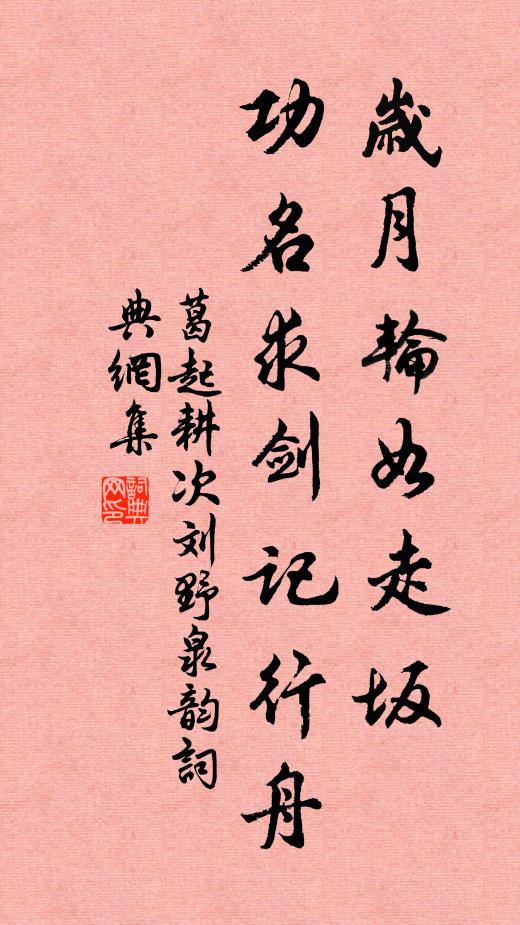 歲月輪如走坂
功名求劍記行舟
葛起耕次刘野泉韵詞
典網集
詞典网印